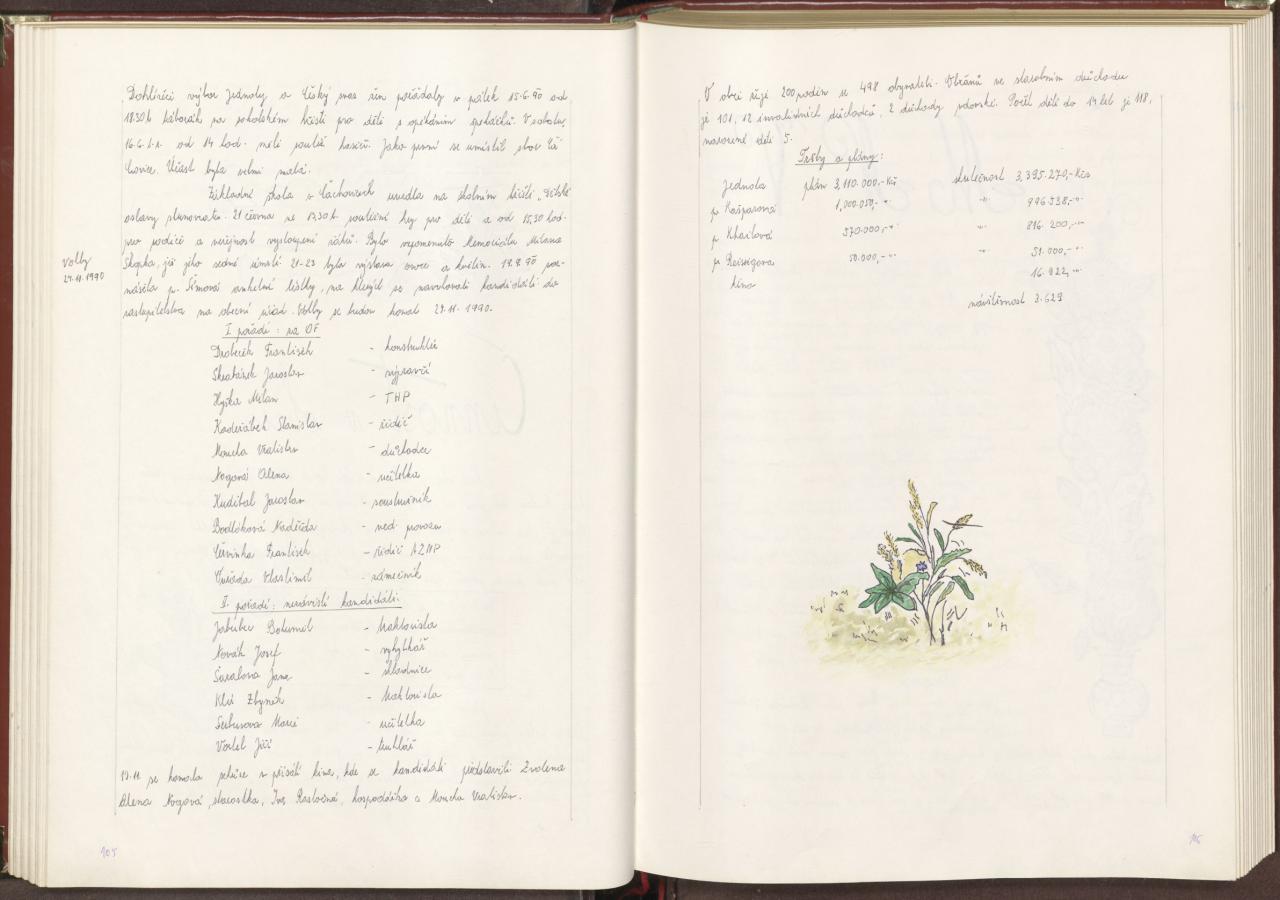 Dohlížecí výbor Jednoty a Český svaz žen pořádaly v pátek 15.6.90 od
18.30 h táborák na sokolském hřišti pro děti s opékáním špekáčků. V sobotu,
16.6. t.r. od 14 hod. měli soutěž hasiči. Jako první se umístil sbor Čá
chovice. Účast byla velmi malá.
Základní škola v Čachovicích uvedla na školním hřišti "Dětské
oslavy slunovratu. 21 června ve 14,30 h soutěžní hry pro děti a od 15,30 hod.
pro rodiče a veřejnost vystoupení žáků. Bylo vzpomenuto Memoriálu Milana
Škopka, již jeho sedmé úmrtí. 21-23 byla výstava ovoce a květin. 19.9.90 roz-
nášela p. Šímová anketní lístky, na kterých se navrhovali kandidáti do
zastupitelstva na obecní úřad. Volby se budou konat 24.11.1990.
Volby
24.11.1990
I. pořadí: za OF
Drobeček František - konstruktér
Jaroslav - výpravčí
Hyška Milan - THP
Kadeřábek Stanislav - řidič
Moucha Vratislav - důchodce
Nogová Alena - učitelka
Kudibal Jaroslav - soustružník
Naděžda - ved. provozu
Červinka František - řidič AZNP
Vlastimil - zámečník
II. pořadí: nezávislí kandidáti:
Jakubec Bohumil - traktorista
Novák Josef - vyhybkář
Šaralova Jana - skladnice
Klíč Zbyněk - traktorista
Marie - učitelka
Vostel Jiří - truhlář
19.11 se konala schůze v přísálí kina, kde se kandidáti představili. Zvolena
Alena Nogová, starostka, Iva, hospodářka a Moucha Vratislav.
105
V obci žije 200 rodin se 498 obyvateli. Občanů ve starobním důchodu
je 101, 12 invalidních důchodců, 2 důchody vdovské. Počet dětí do 14 let je 118,
narozené děti 5.
Tržby a plány:
Jednota plán 3,110.000,-Kčs skutečnost 3,395.270,-Kčs
p. Kašparová 1,000.050,-" " 996.538,-"
p. Khailová 570.000,-" " 816.200,-"
p. Reissigova 50.000,-" " 51.000,-"
kino 16.922,-"
návštěvnost 3.629